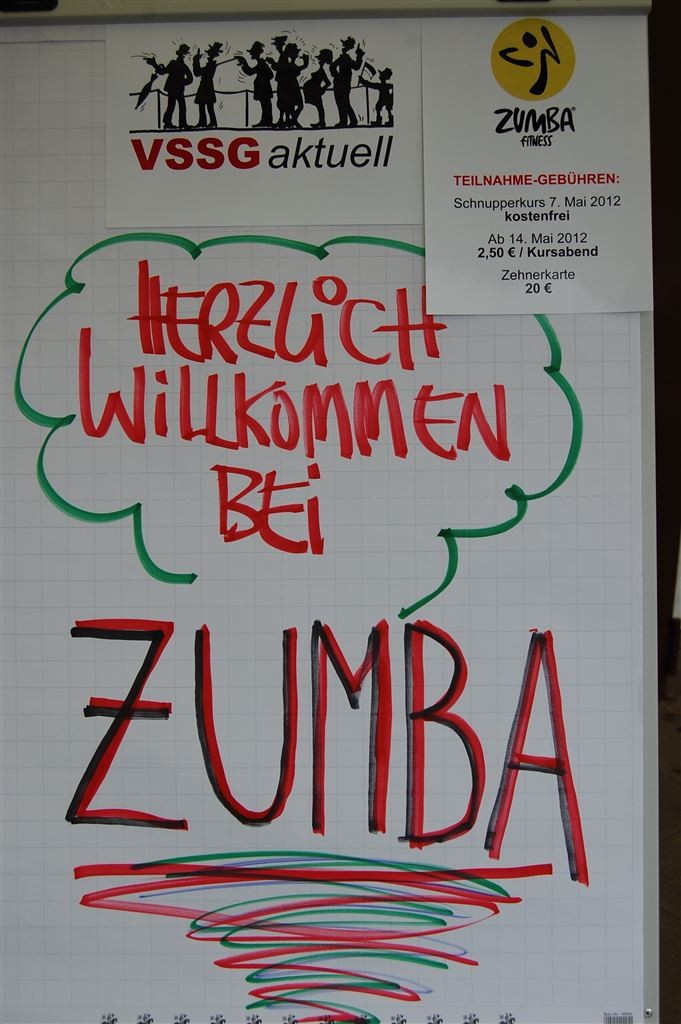 VSSG aktuell
ZUMBA®
FITNESS
TEILNAHME-GEBÜHREN:
Schnupperkurs 7. Mai 2012
kostenfrei
Ab 14. Mai 2012
2,50 € / Kursabend
Zehnerkarte
20 €
HERZLICH
WILLKOMMEN
BEI
ZUMBA